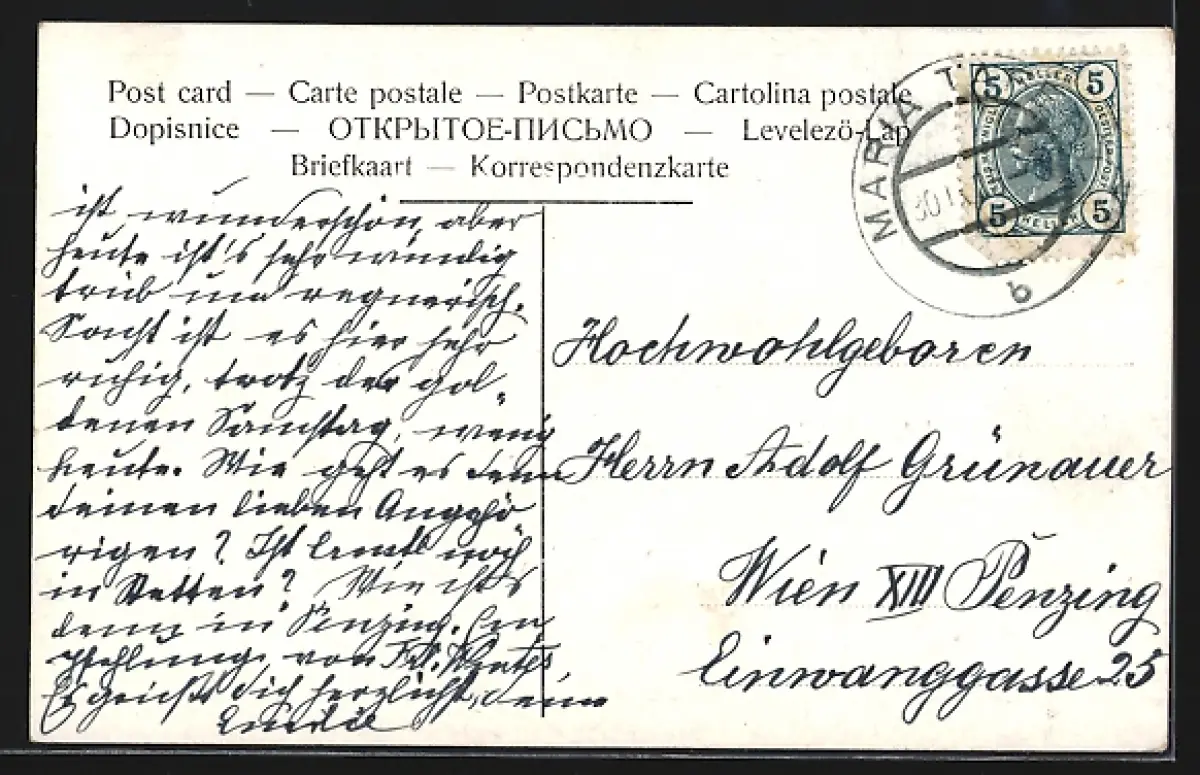 Post card — Carte postale — Postkarte — Cartolina postale
Dopisnice — ОТКРЫТОЕ-ПИСЬМО — Levelezö-Lap
Briefkaart — Korrespondenzkarte
MARIA T
30 IX
b
5 HELLER 5
5 HELLER 5
ist wunderschön, aber
heute ist's sehr windig
trüb und regnerisch.
Sonst ist es hier sehr
ruhig, trotz des gol-
denen Samstag, wenig
heute. Wie geht es denn
deinen lieben Angehö
rigen? Ist noch
in ? Wie ist's
denn in Penzing. Em
pfehlung von Frl.
Es grüßt dich herzlichst, dein
Hochwohlgeboren
Herrn Adolf Grünauer
Wien XIII Penzing
Einwanggasse 25